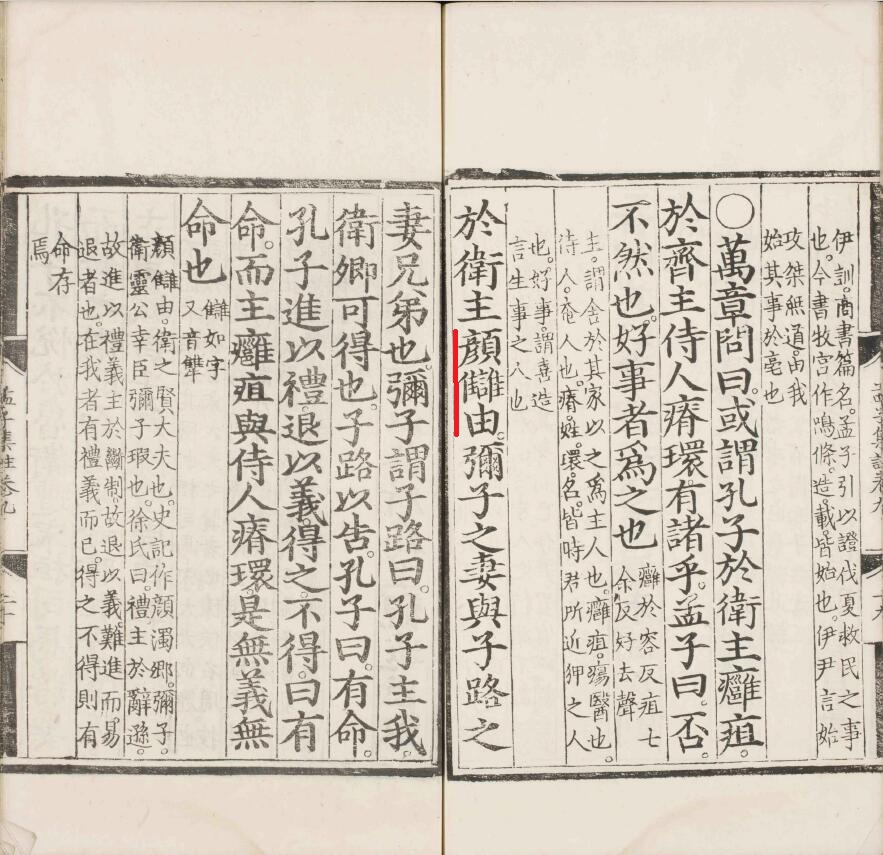 伊訓。商書篇名。孟子引以證伐夏救民之事
也。今書牧宮作鳴條。造載皆始也。伊尹言始
攻桀無道。由我
始其事於亳也
〇萬章問曰。或謂孔子於衛主癰疽。
於齊主侍人瘠環。有諸乎。孟子曰。否。
不然也。好事者爲之也
癰於容反疽七
余反好去聲
主。謂舍於其家以之爲主人也。癰疽。瘍醫也。
侍人。奄人也。瘠。姓。環。名。皆時君所近狎之人
也。好事。謂喜造
言生事之人也
於衛主顏讎由。彌子之妻與子路之
妻兄弟也。彌子謂子路曰。孔子主我。
衛卿可得也。子路以告。孔子曰。有命。
孔子進以禮。退以義。得之。不得。曰有
命。而主癰疽與侍人瘠環。是無義無
命也
讎如字
又音犨
顏讎由。衛之賢大夫也。史記作顏濁鄒。彌子。
衛靈公幸臣彌子瑕也。徐氏曰。禮主於辭遜。
故進以禮。義主於斷制。故退以義。難進而易
退者也。在我者有禮義而已。得之不得則有
命存
焉
孟子集註卷九